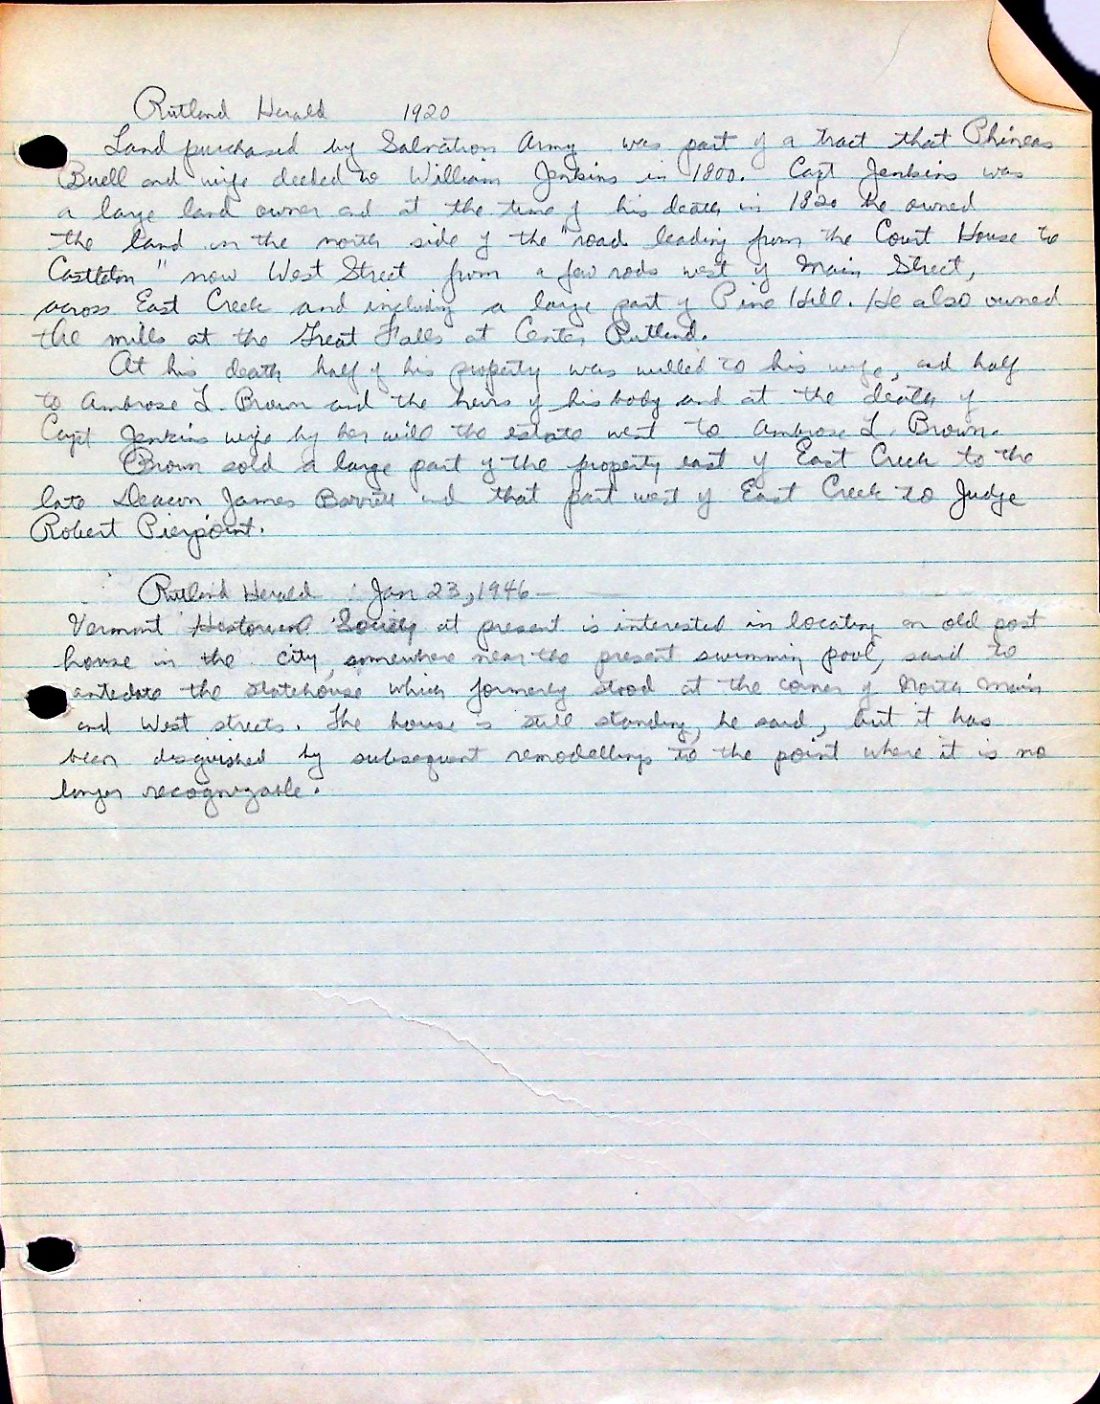 Rutland Herald 1920
Land purchased by Salvation Army was part of a tract that Phineas
Buell and wife deeded to William Jenkins in 1800. Capt Jenkins was
a large land owner and at the time of his death in 1820 he owned
the land on the north side of the "road leading from the Court House to
Castleton" now West Street from a few rods west of Main Street,
across East Creek and including a large part of Pine Hill. He also owned
the mills at the Great Falls at Center Rutland.
At his death half of his property was willed to his wife, and half
to Ambrose L. Brown and the heirs of his body and at the death of
Capt Jenkins wife by her will the estate went to Ambrose L. Brown.
Brown sold a large part of the property east of East Creek to the
late Deacon James Barrett and that part west of East Creek to Judge
Robert Pierpoint.
Rutland Herald Jan 23, 1946
Vermont Historical Society at present is interested in locating an old post
house in the city, somewhere near the present swimming pool, said to
antedate the statehouse which formerly stood at the corner of North Main
and West streets. The house is still standing, he said, but it has
been disguished by subsequent remodellings to the point where it is no
longer recognizable.